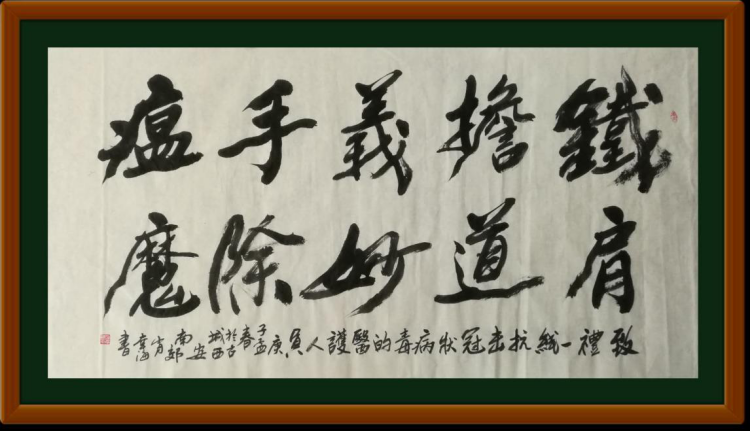 鐵肩
擔道
義妙
手除
瘟魔
致禮一綫抗击冠狀病毒的醫護人員庚子孟春於古城西安南郊肖書